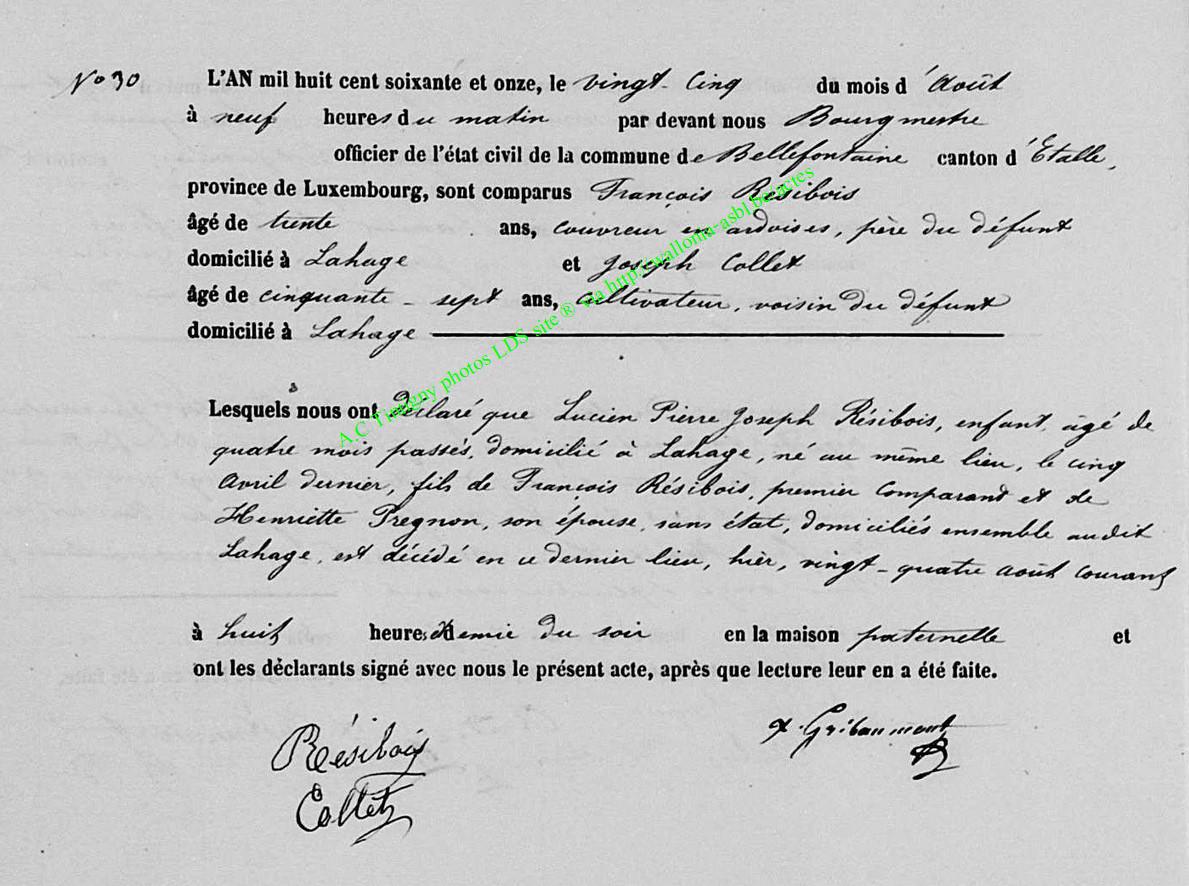 N° 30
L'AN mil huit cent soixante et onze, le vingt-cinq du mois d'Août
à neuf heures du matin par devant nous Bourgmestre
officier de l'état civil de la commune de Bellefontaine canton d'Etalle,
province de Luxembourg, sont comparus François Résibois
âgé de trente ans, couvreur en ardoises, père du défunt
domicilié à Lahage et Joseph Collet
âgé de cinquante-sept ans, cultivateur, voisin du défunt
domicilié à Lahage
Lesquels nous ont déclaré que Lucien Pierre Joseph Résibois, enfant, âgé de
quatre mois passés, domicilié à Lahage, né au même lieu, le cinq
Avril dernier, fils de François Résibois, premier comparant et de
Henriette Pregnon, son épouse, sans état, domiciliés ensemble audit
Lahage, est décédé en ce dernier lieu, hier, vingt-quatre août courant
à huit heures demie du soir en la maison paternelle et
ont les déclarants signé avec nous le présent acte, après que lecture leur en a été faite.
Gribaumont
Résibois
Collet
A.C Tintigny photos LDS site ® via http://walloma-asbl.be/actes